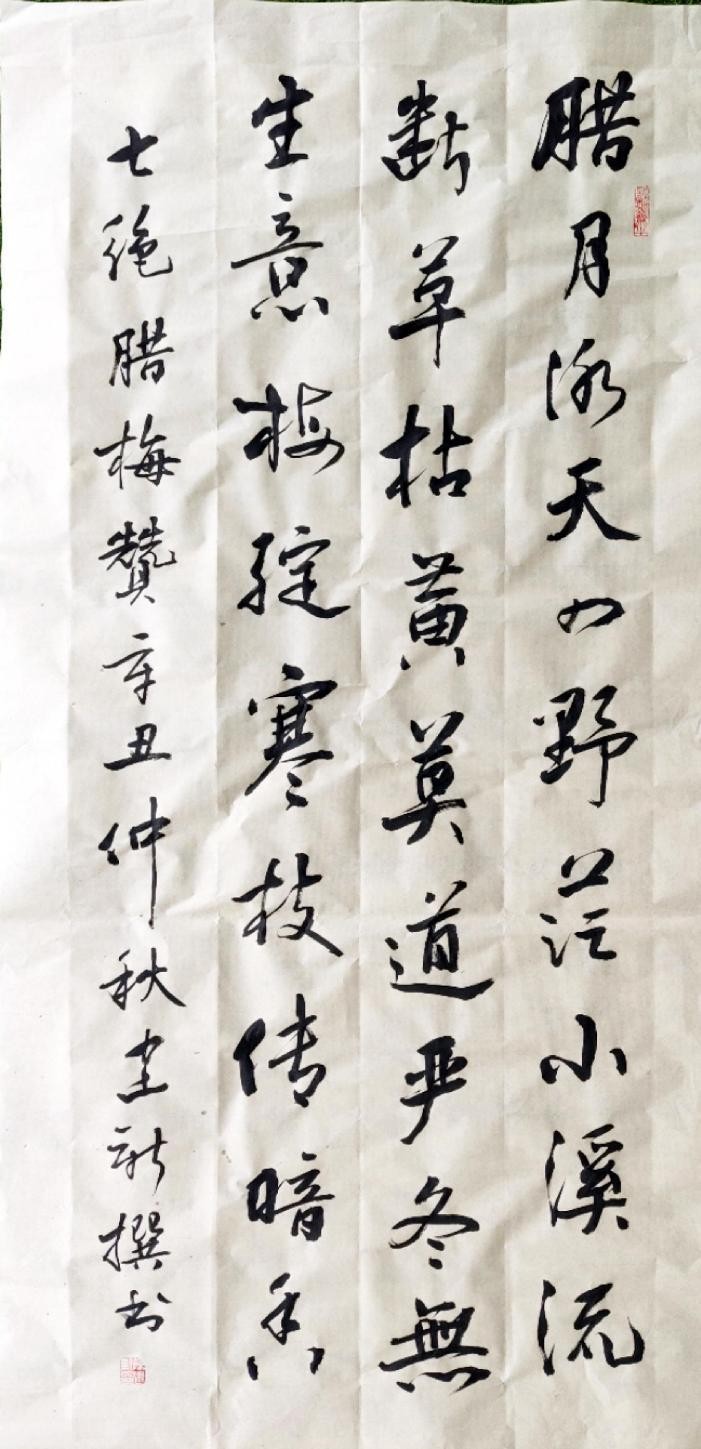 腊月冰天四野茫小溪流
断草枯黄莫道严冬無
生意梅绽寒枝传暗香
七绝腊梅贊辛丑仲秋新撰书